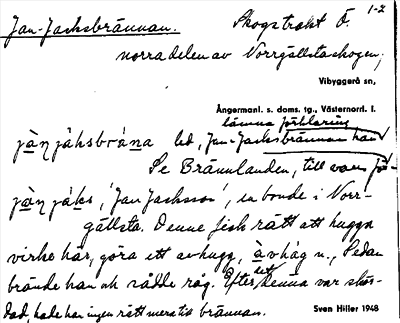 Jan-Jacksbrännan. Skogstrakt Ö. 1-2
norra delen av Norrgällstaskogen,
Vibyggerå sn,
Ångermanl. s. doms. tg., Västernord. l.
lämna förklaring
jàn jáksbrána bet. Jan-Jacksbrännan har
Se Brännlanden, till vars för-
jàn jáks, 'Jan Jacksson', en bonde i Norr-
gällsta. Denne fick rätt att hugga
virke här, göra ett avhugg, àvhág n., Sedan
brände han och sådde råg. Efter det denna var skör-
dad, hade han ingen rätt mera till brännan.
Sven Hiller 1948